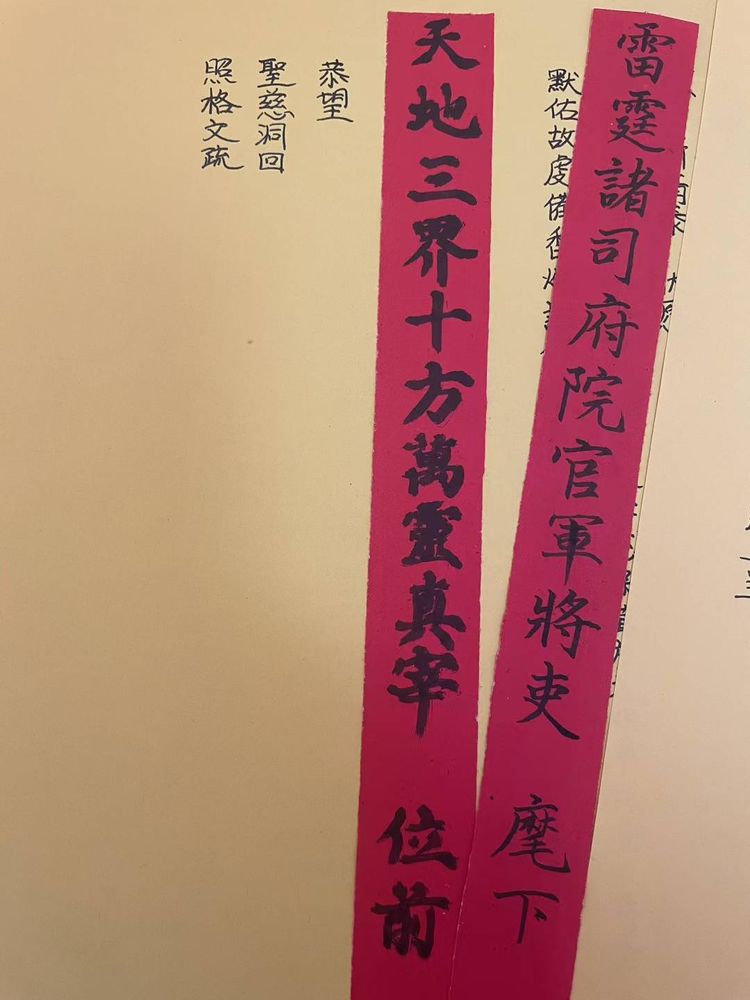 雷霆諸司府院官軍將吏 麾下
默佑故虔備香
天地三界十方萬靈真宰 位前
恭望
聖慈洞回
照格文疏